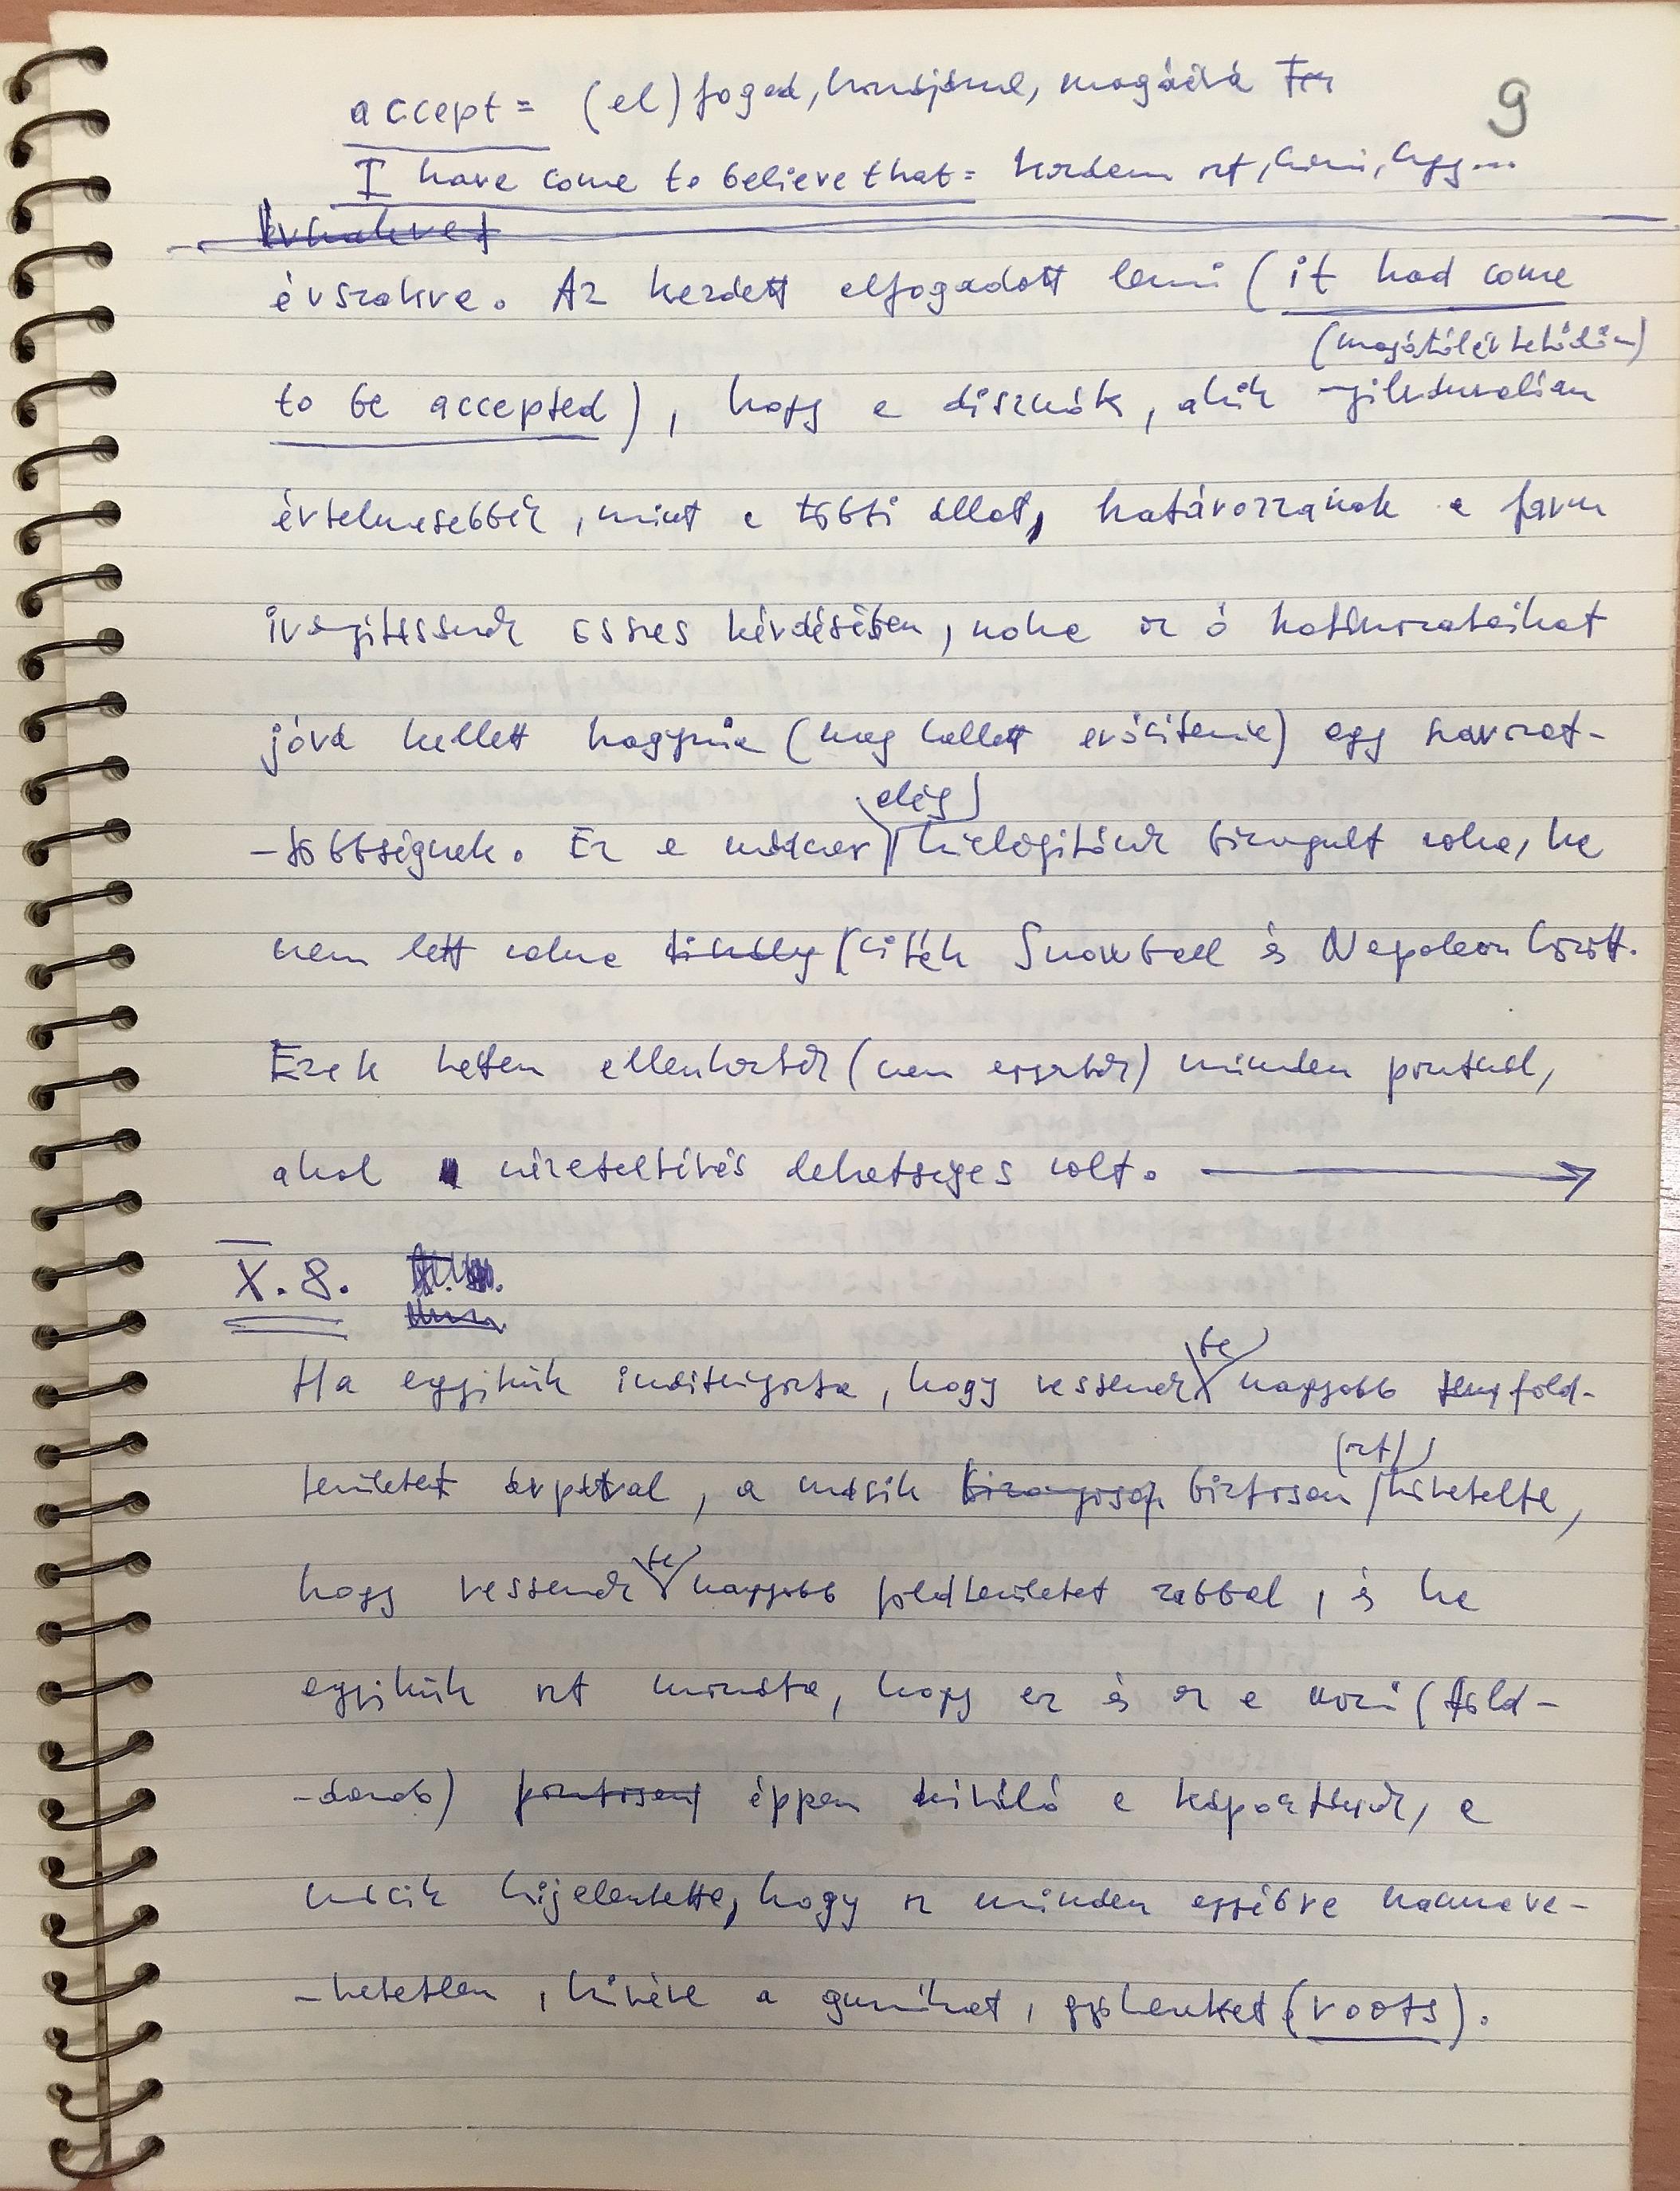 9
accept = (el)fogad, hozzájárul, magáévá tesz
I have come to believe that = kezdem azt hinni, hogy...
évszakra. Az kezdett elfogadott lenni (it had come
(magátólértetődően)
to be accepted), hogy a disznók, akik nyilvánvalóan
értelmesebbek, mint a többi állat, határozzanak a farm
irányításának összes kérdésében, noha az ő határozataikat
jóvá kellett hagynia (meg kellett erősítenie) egy szavazat-
elég
-többségnek. Ez a módszer kielégítőnek bizonyult volna, ha
nem lett volna viták Snowball és Napoleon között.
Ezek ketten ellenkeztek (nem egyeztek) minden pontnál,
ahol nézeteltérés lehetséges volt. →
X. 8.
be
Ha egyikük indítványozta, hogy vessenek nagyobb föld-
(azt)
területet árpával, a másik biztosan követelte,
be
hogy vessenek nagyobb földterületet zabbal, és ha
egyikük azt mondta, hogy ez és ez a mező (föld-
-darab) éppen kiváló a káposztának, a
másik kijelentette, hogy az minden egyébre haszna ve-
-hetetlen, kivéve a gumókat, gyökereket (roots).